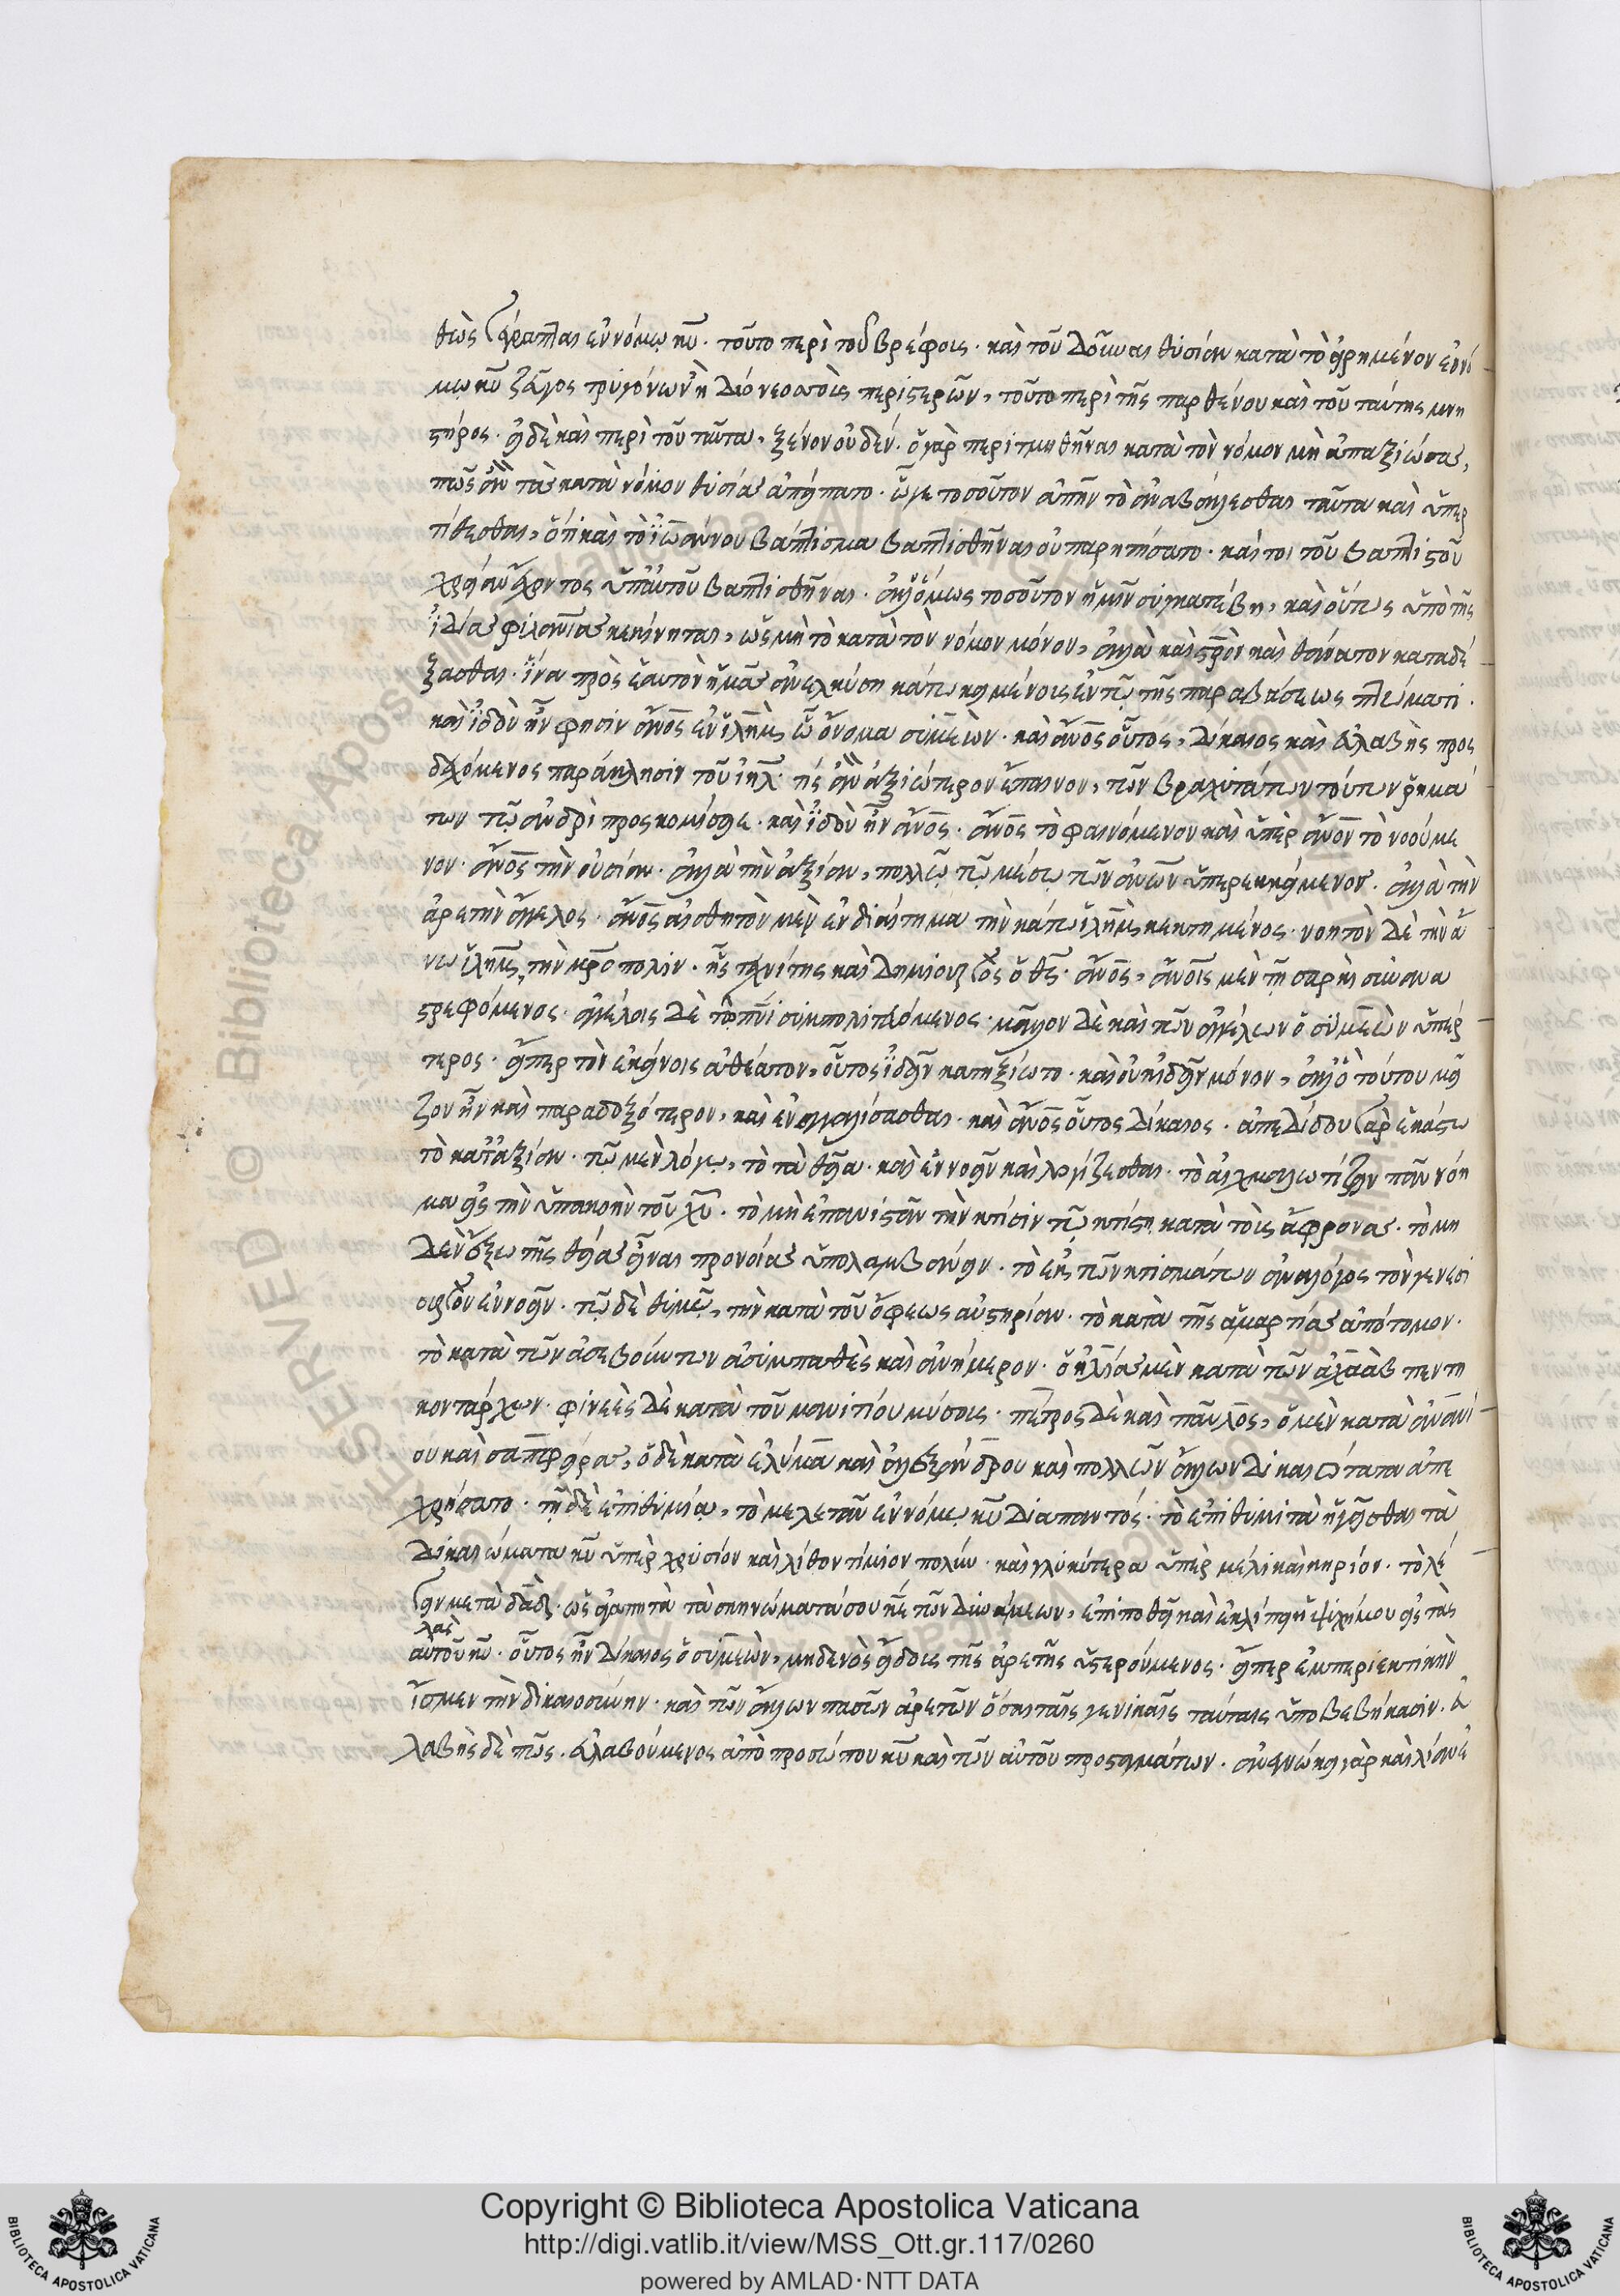 θὼς γέγραπται ἐν νόμω κυ. τοῦτο περὶ τοῦ βρέφους. καὶ τοῦ δοῦναι θυσίαν κατὰ τὸ εἰρημένον ἐν νό
μω κυ ζεῦγος τρυγόνων ἢ δύο νεοσσοὺς περιστερῶν, τοῦτο περὶ τῆς παρθένου καὶ τοῦ ταύτης μνη
στῆρος. εἰ δὲ καὶ περὶ τοῦ ταῦτα, ξένον οὐδέν. ὁ γὰρ περιτμηθῆναι κατὰ τὸν νόμον μὴ ἀπαξιώσας,
πῶς ἂν τὰς κατὰ νόμον θυσίας ἀπείπατο. ὧ γε τοσοῦτον ἀπῆν τὸ ἀναβάλλεσθαι ταῦτα καὶ ὑπερ
τίθεσθαι, ὅτι καὶ τὸ ϊωάννου βάπτισμα βαπτισθῆναι οὐ παρητήσατο. καίτοι τοῦ βαπτιστοῦ
χρείαν ἔχοντος ὑπ' αὐτοῦ βαπτισθῆναι. ἀλλ' ὅμως τοσοῦτον ἡμῖν συγκατέβη, καὶ οὕτως ὑπὸ τῆς
ἰδίας φιλανιας κεκίνηται, ὡς μὴ τὸ κατὰ τὸν νόμον μόνον, ἀλλὰ καὶ στρον καὶ θάνατον καταδέ
ξασθαι. ἵνα πρὸς ἑαυτὸν ἡμᾶς ἀνελκύση κάτω κειμένους ἐν τῶ τῆς παραβάσεως πτώματι.
καὶ ϊδοὺ ἦν φησιν ανος ἐν ϊλημ, ὧ ὄνομα συμεών. καὶ ανος οὗτος, δίκαιος καὶ εὐλαβὴς προσ
δεχόμενος παράκλησιν τοῦ ιηλ. τίς ἂν ἀξιώτερον ἔπαινον, τῶν βραχυτάτων τούτων ῥημά
των τῶ ἀνδρὶ προσκομίσειε. καὶ ϊδοὺ ἦν ανος. ανος τὸ φαινόμενον καὶ ὑπὲρ ανον τὸ νοούμε
νον. ανος τὴν οὐσίαν. ἀλλὰ τὴν ἀξίαν, πολλῶ τῶ μέσω τῶν ανων ὑπερεκείμενος. ἀλλὰ τὴν
ἀρετὴν ἄγγελος. ανος αἰσθητὸν μὲν ἐνδιαίτημα τὴν κάτω ϊλημ κεκτημένος. νοητὸν δὲ τὴν ἄ
νω ϊλημ, τὴν μρόπολιν. ἧς τεχνίτης καὶ δημιουργὸς ὁ θς. ανος, ανοις μὲν τῆ σαρκὶ συνανα
στρεφόμενος. ἀγγέλοις δὲ τῶ πνι συμπολιτευόμενος. μᾶλλον δὲ καὶ τῶν ἀγγέλων ὁ συμεὼν ὑπέρ
τερος. εἴπερ τὸν ἐκείνοις ἀθέατον, οὗτος ϊδεῖν κατηξίωτο. καὶ οὐκ ϊδεῖν μόνον, ἀλλ' ὃ τούτου μεῖ
ζον ἦν καὶ παραδοξότερον, καὶ ἐναγκαλίσασθαι. καὶ ανος οὗτος δίκαιος. ἀπεδίδου γὰρ ἑκάστω
τὸ κατ' ἀξίαν. τῶ μὲν λόγω, τὸ τὰ θεῖα. καὶ ἐννοεῖν καὶ λογίζεσθαι. τὸ αἰχμαλωτίζειν πᾶν νόη
μα εἰς τὴν ὑπακοὴν τοῦ χυ. τὸ μὴ ἐπανιστᾶν τὴν κτίσιν τῶ κτίστη κατὰ τοὺς ἄφρονας. τὸ μη
δὲν ἔξω τῆς θείας εἶναι προνοίας ὑπολαμβάνειν. τὸ ἐκ τῶν κτισμάτων ἀναλόγως τὸν γενεσι
ουργὸν ἐννοεῖν. τῶ δὲ θυμῶ, τὴν κατὰ τοῦ ὄφεως αὐστηρίαν. τὸ κατὰ τῆς ἁμαρτίας ἀπότομον.
τὸ κατὰ τῶν ἀσεβούντων ἀσυμπαθὲς καὶ ἀνήμερον. ὁ ἠλίας μὲν κατὰ τῶν ἀχαὰβ πεντη
κοντάρχων. φινεὲς δὲ κατὰ τοῦ μανιτίου μύσους. πέτρος δὲ καὶ παῦλος, ὁ μὲν κατὰ ἀνανί
ου καὶ σαπφείρας, ὁ δὲ κατὰ ἐλύμα καὶ ἀλεξάνδρου καὶ πολλῶν ἄλλων δικαιότατα ἀπε
χρήσατο. τῆ δὲ ἐπιθυμία, τὸ μελετᾶν ἐν νόμω κυ διαπαντός. τὸ ἐπιθυμητὰ ἡγεῖσθαι τὰ
δικαιώματα κυ ὑπὲρ χρυσίον καὶ λίθον τίμιον πολύν. καὶ γλυκύτερα ὑπὲρ μέλι καὶ κηρίον. τὸ λέ
γειν μετὰ δαδ. ὡς ἀγαπητὰ τὰ σκηνώματά σου κε τῶν δυνάμεων, ἐπιποθεῖ καὶ ἐκλείπει ἡ ψυχή μου εἰς τὰς
αὐλὰς τοῦ κυ. οὗτος ἦν δίκαιος ὁ συμεὼν, μηδενὸς εἴδους τῆς ἀρετῆς ὑστερούμενος. εἴπερ ἐμπεριεκτικὴν
ἴσμεν τὴν δικαιοσύνην. καὶ τῶν ἄλλων πασῶν ἀρετῶν ὅσαι ταῖς γενικαῖς ταύταις ὑποβεβήκασιν. εὐ
λαβὴς δὲ πῶς. εὐλαβούμενος ἀπὸ προσώπου κυ καὶ τῶν αὐτοῦ προσταγμάτων. ἀνεγνώκει γὰρ καὶ λίαν ἐ
Copyright © Biblioteca Apostolica Vaticana
http://digi.vatlib.it/view/MSS_Ott.gr.117/0260
powered by AMLAD·NTT DATA